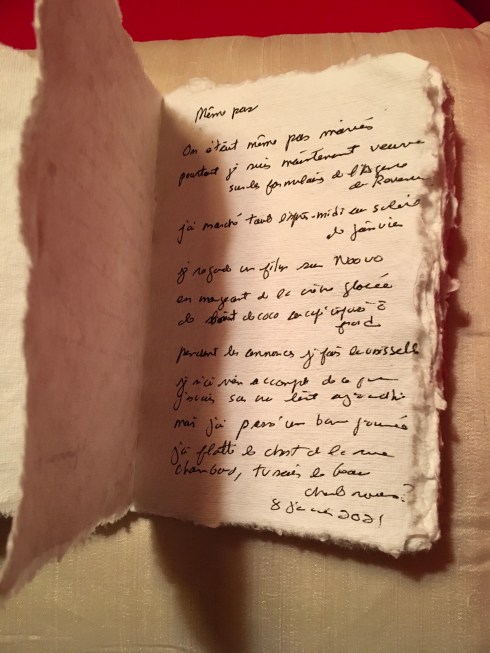 Même pas
On était même pas mariés
pourtant j suis maintenant veuve
sur les formulaires de l'Agence
de Revenu
j'ai marché tout l'après-midi au soleil
de janvier
j regarde un film sur Noovo
en mangeant de la crème glacée
de lait de coco au café infusé à
froid
pendant les annonces j fais la vaisselle
j n'ai rien accompli de ce que
j'avais sur ma liste aujourd'hui
mais j'ai passé une bonne journée
j'ai flatté le chat de la rue
Chambord, tu sais le beau
chat roux?
8 janvier 2021